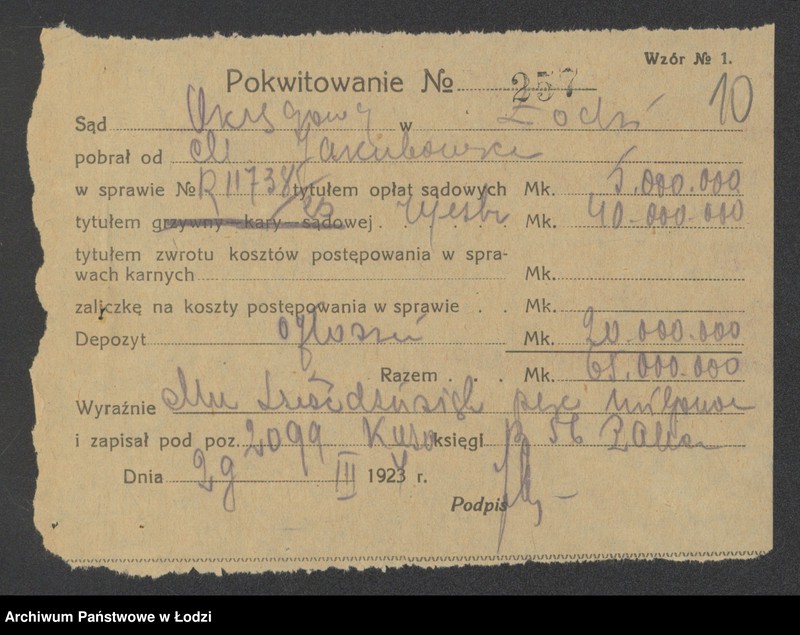 Wzór № 1.
Pokwitowanie № 257
10
Sąd Okręgowy w Łodzi
pobrał od M Jakubowska
w sprawie № R 11738 tytułem opłat sądowych Mk. 5.000.000
tytułem grzywny kary sądowej Mk. 40.000.000
tytułem zwrotu kosztów postępowania w spra-
wach karnych Mk.
zaliczkę na koszty postępowania w sprawie Mk.
Depozyt ogłoszeń Mk. 20.000.000
Razem Mk. 65.000.000
Wyraźnie Mk sześćdziesiąt pięć milionów
i zapisał pod poz. 2099 księgi
Dnia 29 III 1923 r.
Podpis
Archiwum Państwowe w Łodzi